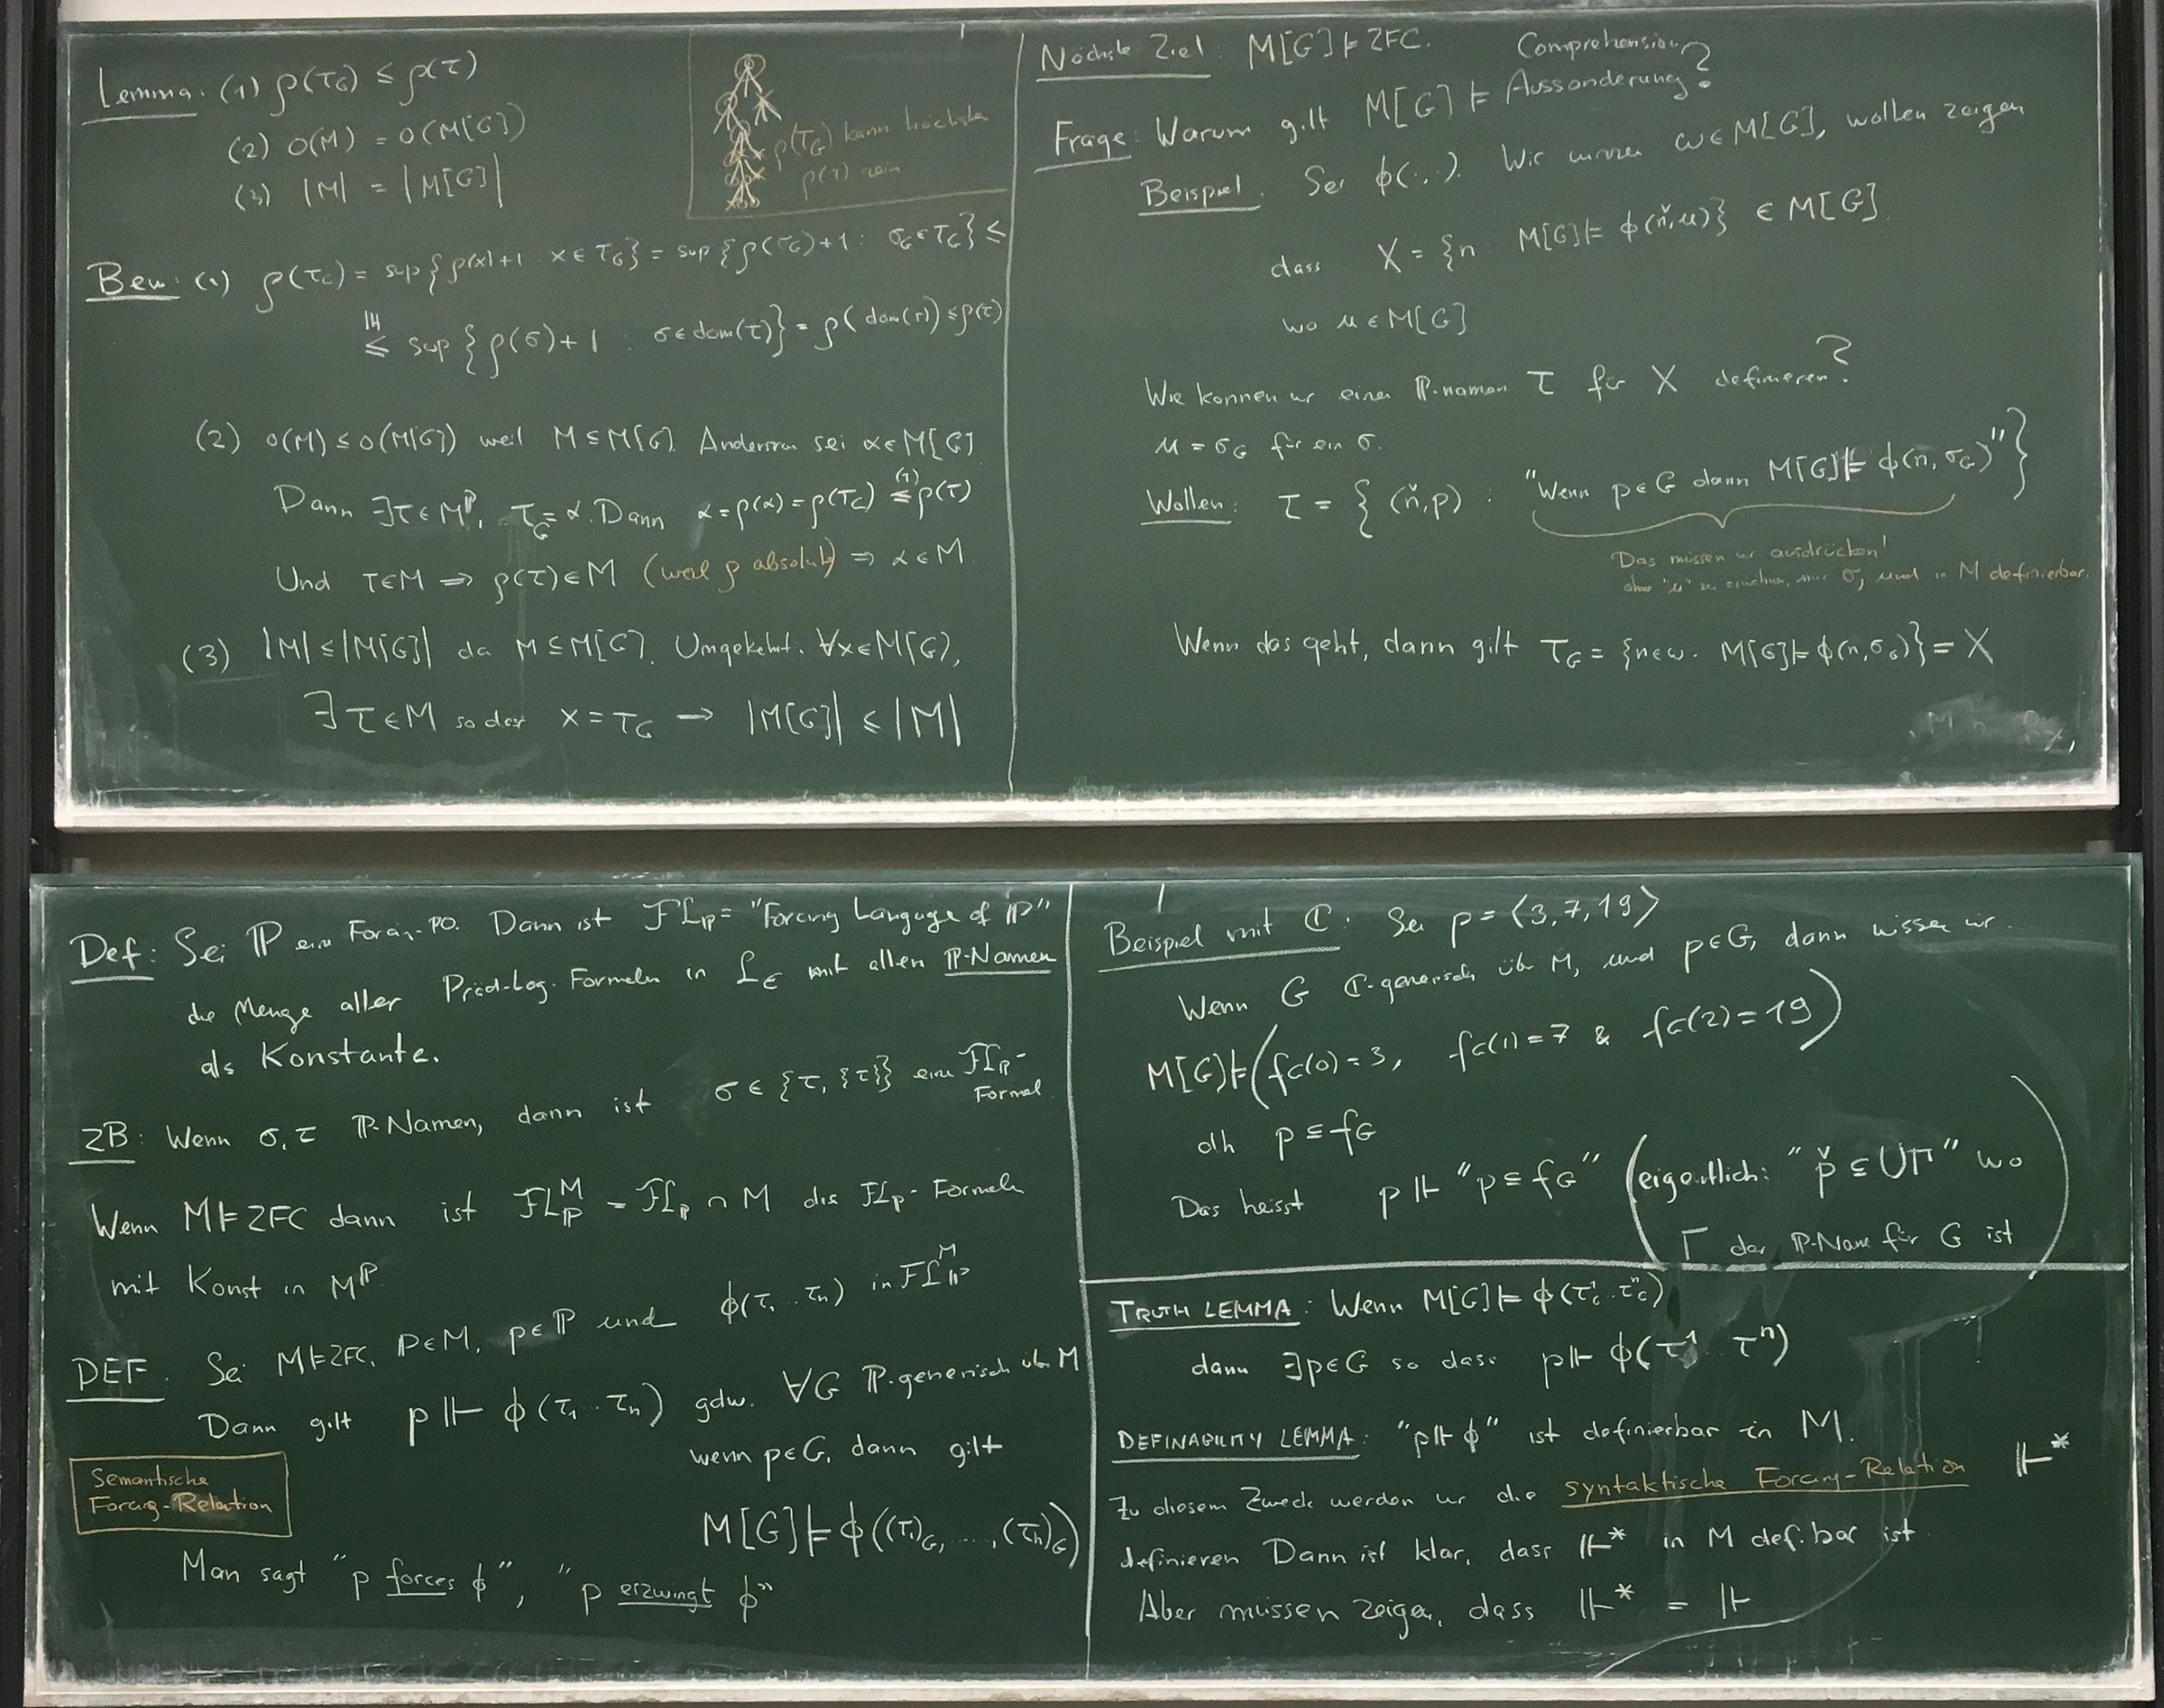 Lemma: (1) ρ(τ_G) ≤ ρ(τ)
(2) O(M) = O(M[G])
(3) |M| = |M[G]|
ρ(τ_G) kann höchste
ρ(τ) sein
Bew: (1) ρ(τ_G) = sup{ρ(x)+1 : x ∈ τ_G} = sup{ρ(σ_G)+1 : σ_G ∈ τ_G} ≤
IH
≤ sup{ρ(σ)+1 : σ ∈ dom(τ)} = ρ(dom(τ)) ≤ ρ(τ)
(2) O(M) ≤ O(M[G]) weil M ⊆ M[G]. Anders sei α ∈ M[G]
Dann ∃τ ∈ M^ℙ, τ_G = α. Dann α = ρ(α) = ρ(τ_G) ≤^(1) ρ(τ)
Und τ ∈ M ⇒ ρ(τ) ∈ M (weil ρ absolut) ⇒ α ∈ M
(3) |M| ≤ |M[G]| da M ⊆ M[G]. Umgekehrt. ∀x ∈ M[G],
∃τ ∈ M so dass x = τ_G → |M[G]| ≤ |M|
Nächste Ziel: M[G] ⊨ ZFC.
Comprehension
Frage: Warum gilt M[G] ⊨ Aussonderung?
Beispiel. Sei ϕ(.,.). Wir wissen ω ∈ M[G], wollen zeigen
dass X = {n : M[G] ⊨ ϕ(ň,u)} ∈ M[G]
wo u ∈ M[G]
Wie können wir einen ℙ-namen τ für X definieren?
u = σ_G für ein σ.
Wollen: τ = {(ň,p) : "Wenn p ∈ G dann M[G] ⊨ ϕ(n,σ_G)"}
Das müssen wir ausdrücken!
ohne "u" zu, nur σ, und in M definierbar.
Wenn das geht, dann gilt τ_G = {n∈ω : M[G] ⊨ ϕ(n,σ_G)} = X
Def: Sei ℙ ein Forcing-PO. Dann ist FL_ℙ = "Forcing Languge of ℙ"
die Menge aller Präd-Log. Formeln in L_∈ mit allen ℙ-Namen
als Konstante.
ZB: Wenn σ, τ ℙ-Namen, dann ist σ ∈ {τ, {τ}} eine FL_ℙ-
Formel
Wenn M ⊨ ZFC dann ist FL_ℙ^M = FL_ℙ ∩ M die FL_ℙ-Formeln
mit Konst in M^ℙ
DEF. Sei M ⊨ ZFC, ℙ ∈ M, p ∈ ℙ und ϕ(τ_1 .. τ_n) in FL_ℙ^M
Dann gilt p ⊩ ϕ(τ_1 .. τ_n) gdw. ∀G ℙ-generisch über M
wenn p ∈ G, dann gilt
M[G] ⊨ ϕ((τ_1)_G, ..., (τ_n)_G)
Semantische
Forcing-Relation
Man sagt "p forces ϕ", "p erzwingt ϕ"
Beispiel mit ℂ: Sei p = ⟨3,7,19⟩
Wenn G ℂ-generisch über M, und p ∈ G, dann wissen wir
M[G] ⊨ (f_G(0) = 3, f_G(1) = 7 & f_G(2) = 19)
dh p ⊆ f_G
Das heisst p ⊩ "p ⊆ f_G" (eigentlich: "p̌ ⊆ ⋃Γ" wo
Γ der ℙ-Name für G ist)
TRUTH LEMMA: Wenn M[G] ⊨ ϕ(τ_G^1 .. τ_G^n)
dann ∃p ∈ G so dass p ⊩ ϕ(τ^1 .. τ^n)
DEFINABILITY LEMMA: "p ⊩ ϕ" ist definierbar in M.
Zu diesem Zweck werden wir die syntaktische Forcing-Relation ⊩*
definieren Dann ist klar, dass ⊩* in M def.bar ist
Aber müssen zeigen, dass ⊩* = ⊩